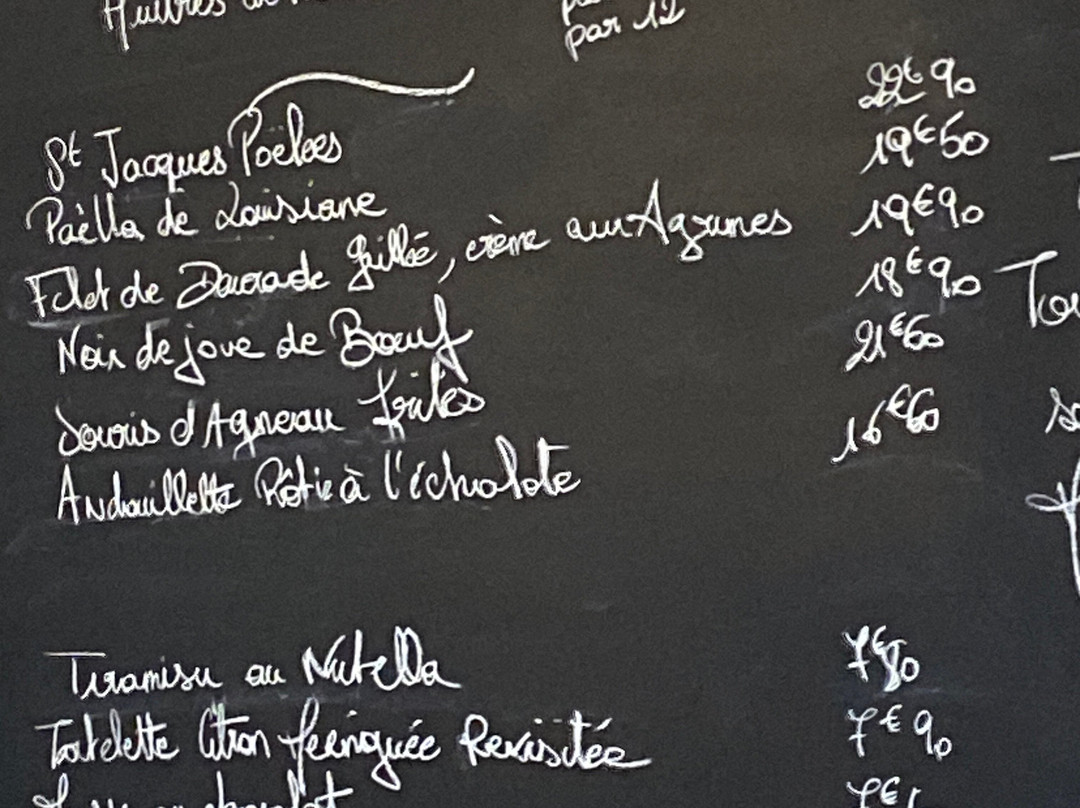 Huîtres
par 12
St Jacques Poëlées 22€90
Paëlla de Louisiane 19€50
Filet de Daurade grillé, crème aux Agrumes 19€90
Noix de joue de Bœuf 18€90
Souris d'Agneau frites 21€60
Andouillette Rôtie à l'échalote 16€60
Tiramisu au Nutella 7€80
Tartelette Citron Meringuée Revisitée 7€90
chocolat